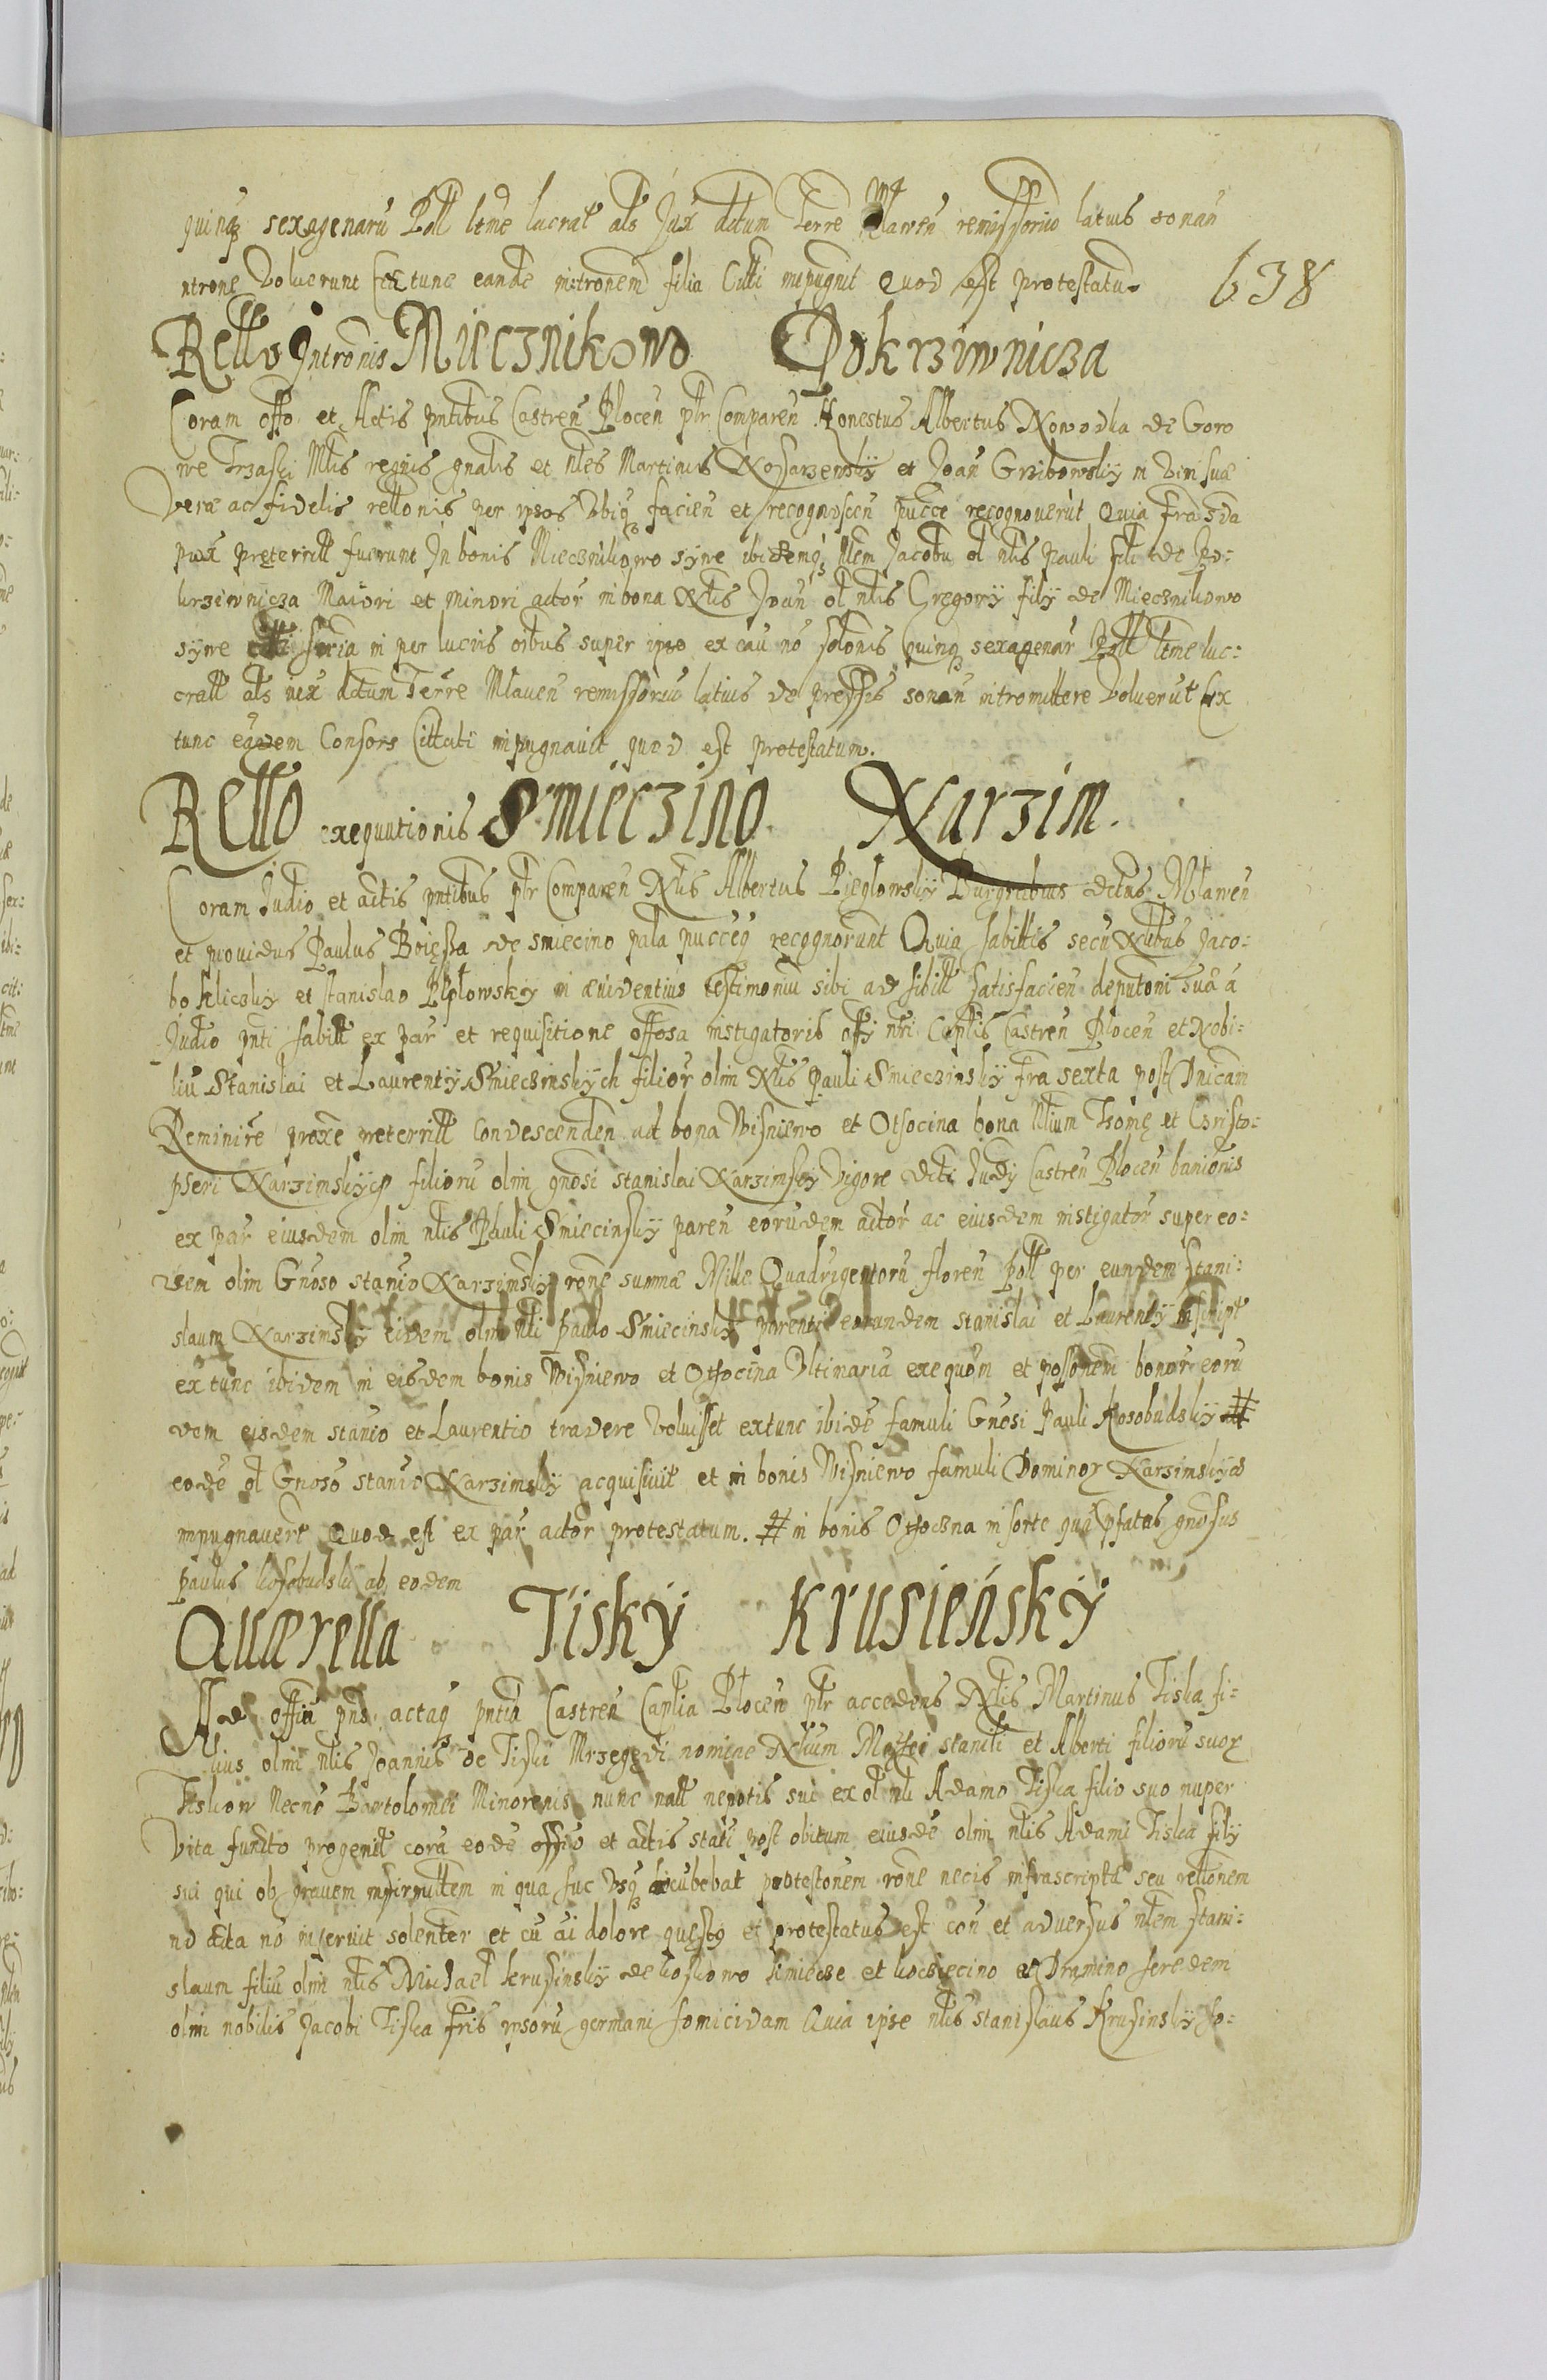 quinq sexagenarũ Poll ltme lucrat als Jux dctum Terre Mlawen remissoriũ latius sonan
ntrone Voluerunt Extunc eande intronem filia Citti inpugnit Quod est protestatũ
638
Rello Intronis Miecznikowo Pokrziwnicza
Coram offo et Actis pntibus Castren Plocen pltr Comparen Honestus Albertus Nowodka de Goro
wo Trzaski Mlis regnis gnalis et nles Martinus et Joan Gribowskÿ in Vim suæ
Veræ ac fidelis rellonis per ipsos Vbiq facien et recognoscen pucce recognoverũt Quia fra 3da
prox preterritt fuerunt In bonis Mieczniliowo syne ibidemq Nlem Jacobũ ol nlis Pauli fili de Po-
krziwnicza Maiori et Minori actor in bona Nlis Joan ol nlis Gregorÿ filÿ de Mieczniliowo
syne in per lucris oibus super ipso ex cau nõ solonis Quinq sexagenar Poll ltme luc-
cratt als iux dctum Terre Mlaven remissoriũ latius de pressis sonan intromittere Voluerũt Ex
tunc eqdem Consors Cittati inpugnauit quod est protestatum.
Rello exequutionis Smieczino Narzim.
Coram Judio et actis pntibus pltr Comparen Nlis Albertus Pieglowskÿ Burgrabius dctus Mlawen
et providus Paulus Boięssa de smiecino pala pucceq recognorunt Quia habittis secũ Nlibus Jaco-
bo Kliczkÿ et stanislao Plplowskÿ in æuidentius testimoniũ sibi ad hibitt satisfacien deputoni suâ á
Judio pnti habitt ex par et requisitione offosa instigatoris offi nri Capitlis Castren Plocen et Nobi-
liũ Stanislai et Laurentÿ Smieczinskÿch filior olim Nlis Pauli Smieczinskÿ fra sexta post Dnicam
Reminire proxe preterritt Condescenden ad bona Wisniewo et Otsocina bona Nlium Thomę et Christo-
pheri Narzimskÿch filiorũ olim gnosi stanislai Narzimskÿ Vigore dcti Judÿ Castren Plocen banionis
ex par eiusdem olim nlis Pauli Smiecinskÿ paren eorũdem actor ac eiusdem instigator super eo-
dem olim Gnoso stanio Narzimskÿ rone summæ Mille Quadrigentorũ floren Poll per eundem stani-
slaum Narzimskÿ eidem olim Nli Paulo Smiecinskÿ parenti eorundem stanislai et Laurentÿ inscript
extunc ibidem in eisdem bonis Wisniewo et Otsocina Vltimaria exequõm et possonem bonor eorũ
dem eisdem stanio et Laurentio tradere Voluisset extunc ibide famuli Gnosi Pauli Kosobudskÿ #
eode ol Gnoso stanio Narzimskÿ acquisiuit et in bonis Wisniewo famuli Dominor Narzimskÿch
inpugnavert Quod est ex par actor protestatum. # in bonis Otsoczna in sorte quã pfatus gnosus
paulus kosobudski ab eodem
Quærella Tiskÿ Krusieńskÿ
Ad offia pns actaq pntia Castren Capitlia Plocen pltr accedens Nlis Martinus Tiska fi-
lius olim nlis Joannis de Tiski Mrzegędi nomine Nlium Mathei stanili et Alberti filiorũ suor
Tiskow Necnõ Bartolomei Minorenis nunc natt nepotis sui ex ol nli Adamo Tiska filio suo nuper
Vita functo progenit corã eode offio et actis stati post obitum eiusde olim nlis Adami Tiska filÿ
sui qui ob gravem infirmittem in qua huc Vsq decubebat protestonem rone necis infrascriptæ seu rellonem
ad acta nõ inseruit solenter et cũ ai dolore questq et protestatus est con et adversus nlem stani-
slaum filiũ olim nlis Michael Krusinskÿ de koskowo kmiecse et kocsiecino et Dramino heredem
olim nobilis Jacobi Tiska fris ipsorũ germani homicidam Quia ipse nlis stanislaus Krusinskÿ ho-